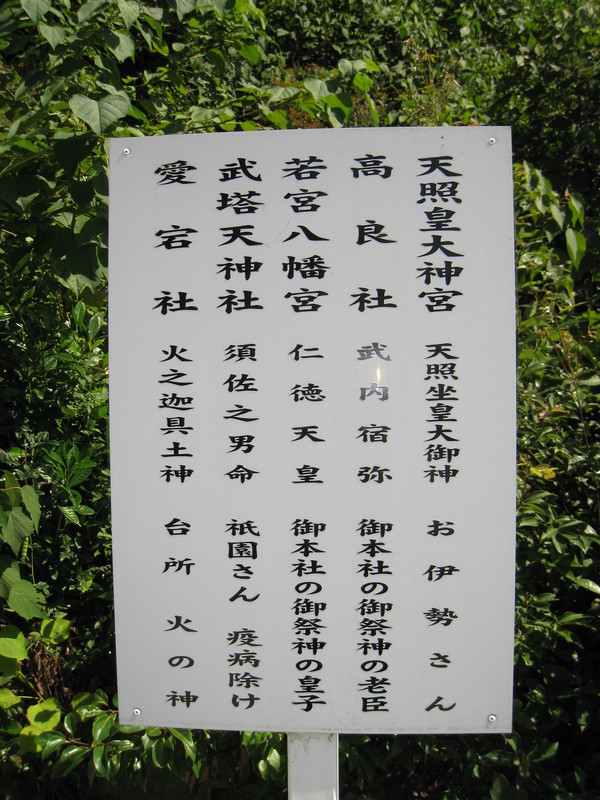 天照皇大神宮 天照坐皇大御神 お伊勢さん
高良社 武内宿弥 御本社の御祭神の老臣
若宮八幡宮 仁徳天皇 御本社の御祭神の皇子
武塔天神社 須佐之男命 祇園さん 疫病除け
愛宕社 火之迦具土神 台所 火の神